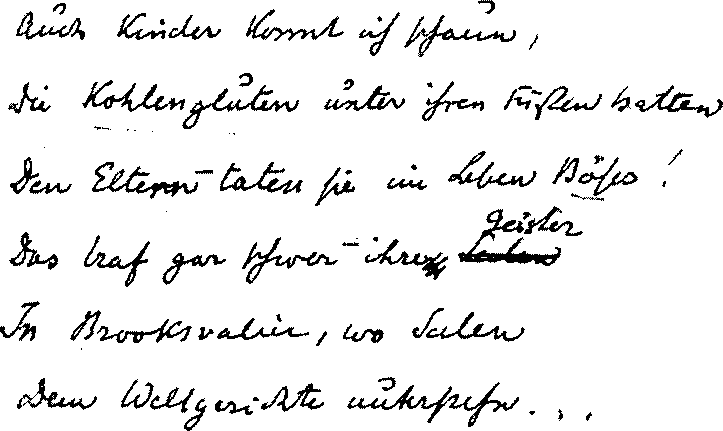 Auch Kinder konnt ich schaun,
Die Kohlengluten unter ihren Füßen hatten
Den Eltern taten sie im Leben Böses!
Das traf gar schwer – ihre Geister
In Brooksvalin, wo Seelen
Dem Weltgerichte unterstehn...